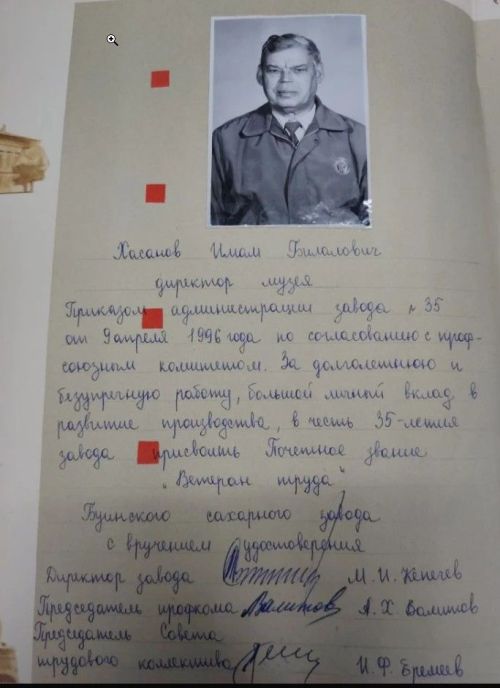 Хасанов Имам Билалович
директор музея
Приказом администрации завода № 35
от 9 апреля 1996 года по согласованию с проф-
союзным комитетом. За долголетнюю и
безупречную работу, большой личный вклад в
развитие производства, в честь 35-летия
завода присвоить Почетное звание
"Ветеран труда"
Буинского сахарного завода
с вручением удостоверения
Директор завода М. И.
Председатель профкома А. Х. Валитов
Председатель Совета
трудового коллектива И. Ф. Еремеев